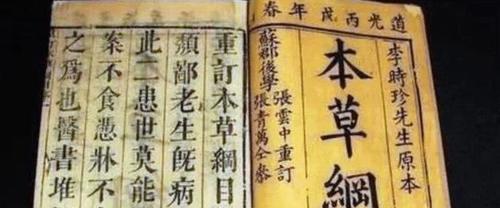 道光丙戌年春
李時珍先生原本
本草綱
蘇郡後學
張雲中重訂
張青萬仝參
重訂本草綱目
鄙老生旣病
此二患世莫能
案不食憑牀不
之爲也醫書堆